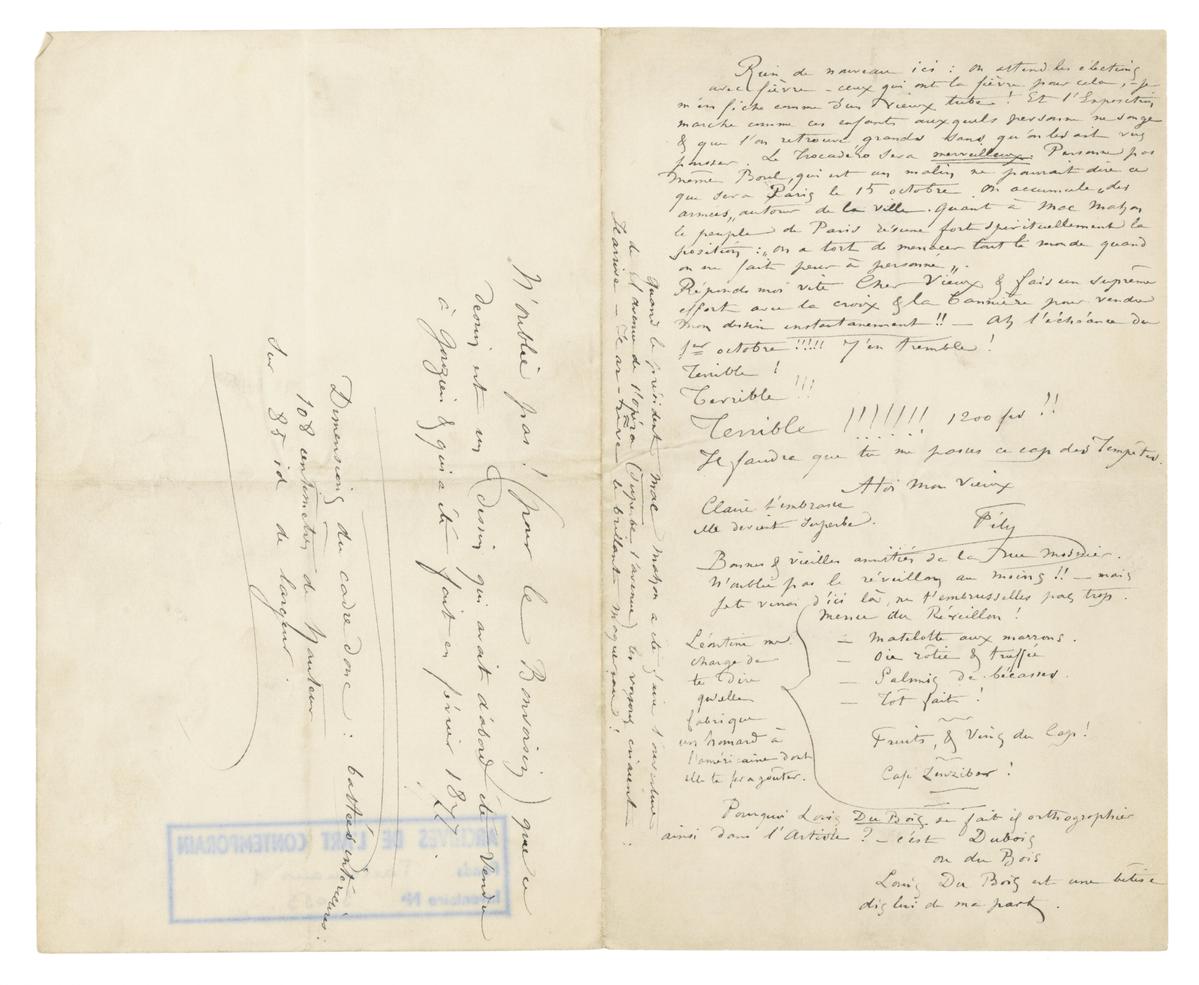 Rien de nouveau ici : on attend les élections
avec fièvre – ceux qui ont la fièvre pour cela, – je
m'en fiche comme d'un vieux tube ! Et l'Exposition
marche comme ces enfants auxquels personne ne songe
& que l'on retrouve grands sans qu'on les ait vus
pousser. Le Trocadéro sera merveilleux. Personne pas
même Borel, qui est un malin ne pourrait dire ce
que sera Paris le 15 octobre. On accumule „des
armées„ autour de la ville. Quant à Mac Mahon
le peuple de Paris résume fort spirituellement la
position : „on a tort de menacer tout le monde quand
on ne fait peur à personne„.
Réponds moi vite Cher Vieux & fais un suprême
effort avec la croix & la bannière pour vendre
mon dessin instantanement !! — Ah l'échéance du
1er octobre !!!!! J'en tremble !
Terrible !
Terrible !!!
Terrible !!!!!!! 1200 frs !!
Il faudra que tu me passes ce cap des Tempêtes.
A toi Mon Vieux
Claire t'embrasse
elle devient superbe.
Fély
Bonnes & vieilles amitiés de la rue Mosnier.
N'oublie pas le réveillon au moins !! — mais
fit venir d'ici là, ne t'embruxelles pas trop.
Menu du Réveillon !
Léontine me
charge de
te dire
qu'elle
fabrique
un homard à
l'américaine dont
elle te fera goûter.
— Matelotte aux marrons.
— Oie rôtie & truffée
— Salmis de bécasses.
— Tôt fait !
Fruits, & Vins du Cap !
Café Zanzibar !
Pourquoi Louis Du Bois se fait il orthographier
ainsi dans l'Artiste ? – c'est Dubois
ou du Bois
Louis Du Bois est une bêtise
dis lui de ma part.
Quand le président Mac Mahon a été à l'ouverture
de l'avenue de l'opéra (superbe l'avenue) les voyous criaient :
N'oublie pas ! (pour le Bonvoisin) que ce
dessin est un dessin qui avait d'abord été vendu
à Gouzien & qui a été fait en février 1877.
Dimensions du cadre donc : battées intérieures :
108 centimètres de hauteur
sur 85 id de largeur.
ARCHIVES DE L'ART CONTEMPORAIN
Fonds
Inventaire No